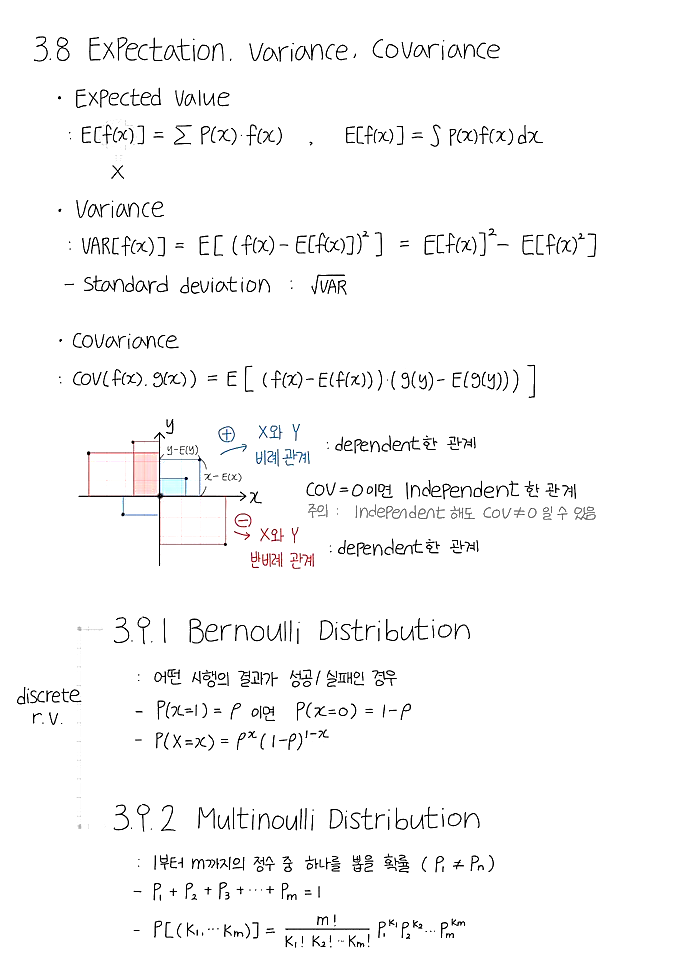 3.8 Expectation. Variance. Covariance
· Expected Value
: E[f(x)] = ∑ P(x)·f(x) , E[f(x)] = ∫ p(x)f(x)dx
X
· Variance
: VAR[f(x)] = E[ (f(x) - E[f(x)])² ] = E[f(x)]² - E[f(x)²]
- Standard deviation : √VAR
· Covariance
: COV(f(x). g(x)) = E[ (f(x)-E(f(x)))·(g(y)-E(g(y))) ]
y
y-E(y)
x-E(x)
x
⊕ X와 Y
비례 관계
: dependent한 관계
COV=0이면 Independent한 관계
주의 : Independent 해도 COV≠0 일 수 있음
⊖ X와 Y
반비례 관계
: dependent한 관계
3.9.1 Bernoulli Distribution
: 어떤 시행의 결과가 성공/실패인 경우
discrete
r.v.
- P(x=1) = ρ 이면 P(x=0) = 1-ρ
- P(X=x) = ρˣ(1-ρ)¹⁻ˣ
3.9.2 Multinoulli Distribution
: 1부터 m까지의 정수 중 하나를 뽑을 확률 ( P₁ ≠ Pₙ )
- P₁ + P₂ + P₃ + ··· + Pₘ = 1
- P[(K₁,··· Kₘ)] = m! / (K₁! K₂! ·· Kₘ!) P₁^K₁ P₂^K₂ ··· Pₘ^Kₘ